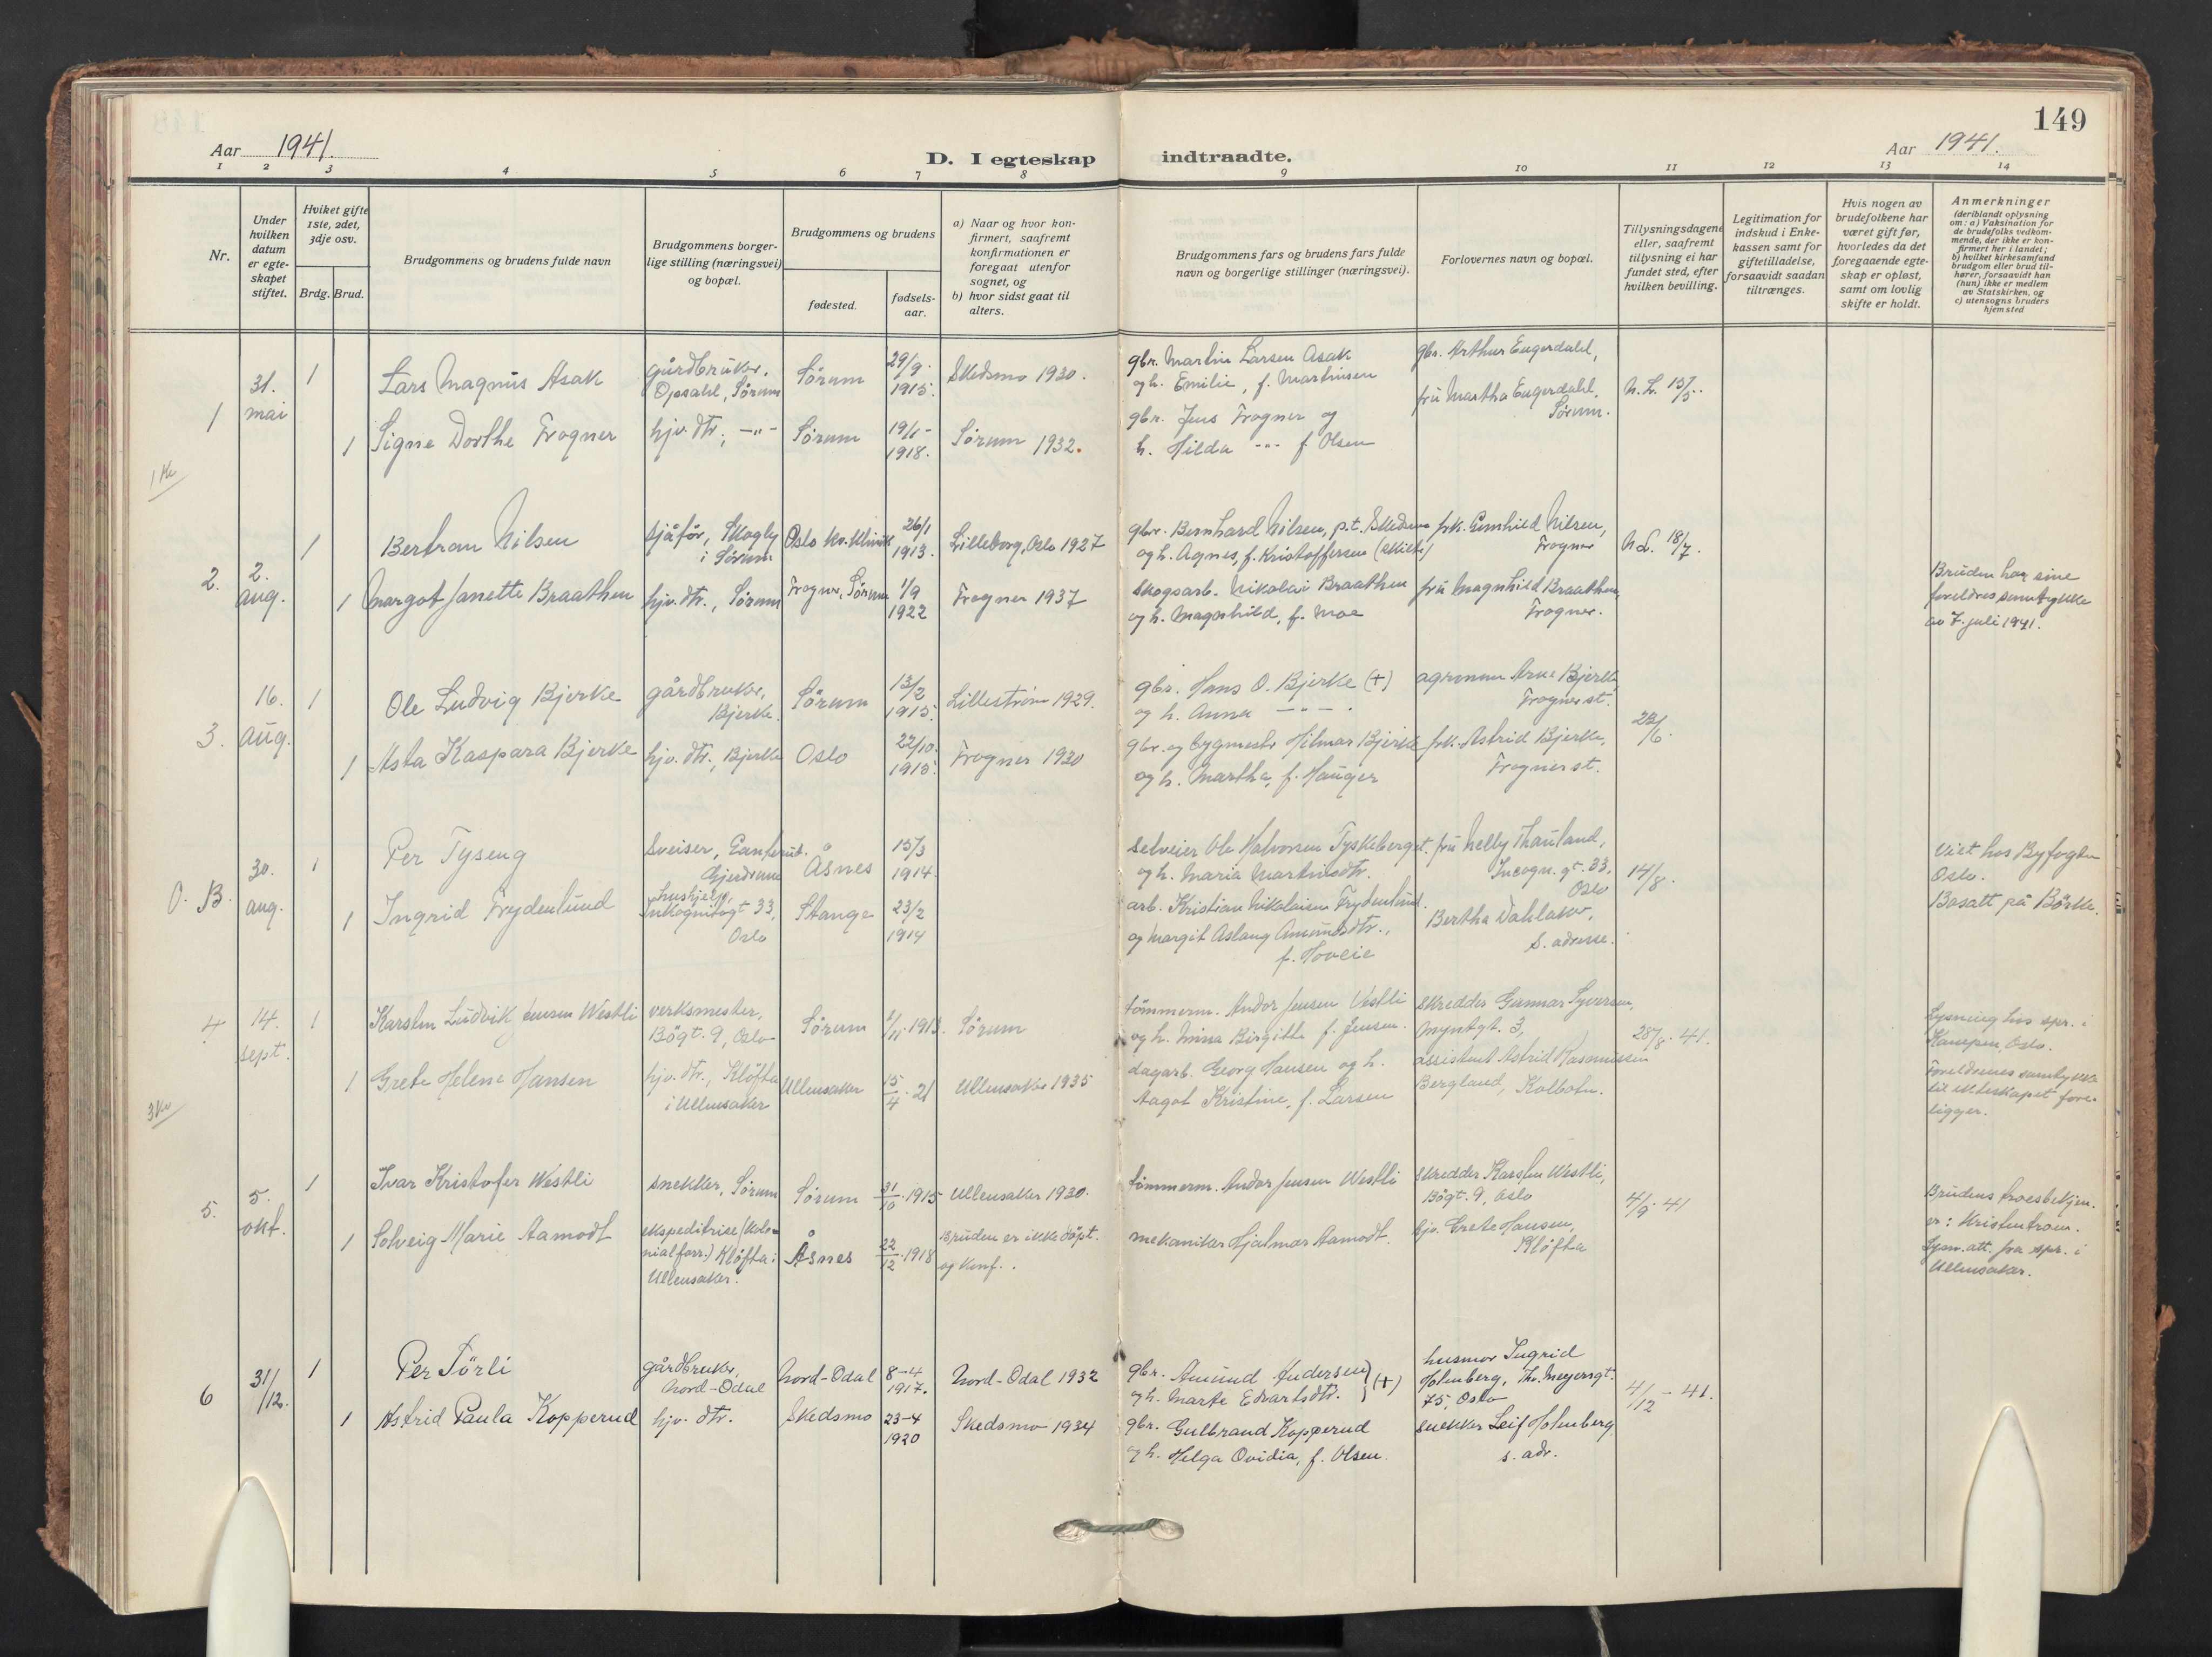 149
Aar 1941.
D. I egteskap indtraadte.
Aar 1941.
1 2 3 4 5 6 7 8 9 10 11 12 13 14
Nr.
Under
hvilken
datum
er egte-
skapet
stiftet.
Hviket gifte
1ste, 2det,
3dje osv.
Brdg. Brud.
Brudgommens og brudens fulde navn
Brudgommens borger-
lige stilling (næringsvei)
og bopæl.
Brudgommens og brudens
fødested.
fødsels-
aar.
a) Naar og hvor kon-
firmert, saafremt
konfirmationen er
foregaat utenfor
sognet, og
b) hvor sidst gaat til
alters.
Brudgommens fars og brudens fars fulde
navn og borgerlige stillinger (næringsvei).
Forlovernes navn og bopæl.
Tillysningsdagene
eller, saafremt
tillysning ei har
fundet sted, efter
hvilken bevilling.
Legitimation for
indskud i Enke-
kassen samt for
giftetilladelse,
forsaavidt saadan
tiltrænges.
Hvis nogen av
brudefolkene har
været gift før,
hvorledes da det
foregaaende egte-
skap er opløst,
samt om lovlig
skifte er holdt.
Anmerkninger
(deriblandt oplysning
om: a) Vaksination for
de brudefolks vedkom-
mende, der ikke er kon-
firmert her i landet;
b) hvilket kirkesamfund
brudgom eller brud til-
hører, forsaavidt han
(hun) ikke er medlem
av Statskirken, og
c) utensogns bruders
hjemsted
1
31.
mai
1
Lars Magnus Asak
gårdbruker,
Opsahl, Sörum
Sörum
29/9.
1915.
Skedsmo 1930.
gbr. Martin Larsen Asak
og h. Emilie, f. Martinsen
gbr. Arthur Engerdahl,
fru Martha Engerdahl,
Sörum.
N. L. 15/5.
1
Signe Dorthe Frogner
hjv. dtr., -"-
Sörum
1918.
Sörum 1932.
gbr. Jens Frogner og
h. Hilda -"- f. Olsen
1 Kr
2.
2.
aug.
1
Bertran Nilsen
sjåför, Skogly
i Sörum
Oslo kv.klinik
26/1
1913.
Lilleborg, Oslo 1927
gbr. Bernhard Nilsen, p.t. Skedsmo
og h. Agnes, f. Kristoffersen (skilt)
frk. Gunhild Nilsen,
Frogner
N.L. 18/7.
1
Margot Janette Braathen
hjv. dtr., Sörum
Frogner, Sörum
1/9
1922
Frogner 1937
Skogsarb. Nikolai Braathen
og h. Magnhild, f. Moe
fru Magnhild Braathen,
Frogner.
Bruden har sine
foreldres samtykke
av 7. juli 1941.
3.
16.
aug.
1
Ole Ludvig Bjerke
gårdbruker,
Bjerke.
Sörum
13/2
1915.
Lilleström 1929.
gbr. Hans O. Bjerke (+)
og h. Anna -"-.
agronom Arne Bjerke,
Frogner st.
1
Asta Kaspara Bjerke
hjv. dtr., Bjerke
Oslo
22/10.
1915.
Frogner 1930
gbr. og bygmestr. Hilmar Bjerke
og h. Martha, f. Hauger
frk. Astrid Bjerke,
Frogner st.
O. B.
30.
aug.
1
Per Tyseng
Sveiser,
Gjerdrum
Åsnes
15/3
1914.
selveier Ole Halvorsen Tyskeberget.
og h. Maria Martinsdtr.
fru Nelly Thauland,
Incogn. gt. 33.
Oslo
14/8.
Viet hos Byfogden
Oslo.
Bosatt på Börke.
1
Ingrid Frydenlund
hushjelp,
Inkognitogt 33,
Oslo
Stange
23/2
1914
arb. Kristian Nikolaisen Frydenlund.
og Margit Aslaug Amundsdtr.,
f. Hoveie
Bertha Dahlaker,
S. adresse.
4
14.
sept.
1
Karsten Ludvik Jensen Westli
verksmester,
Bögt. 9, Oslo
Sörum
1/11. 1913.
Sörum
tömmerm. Andor Jensen Vestli
og h. Anna Birgitte f. Jensen.
skredder Gunnar Syversen,
Myntgt. 3,
28/8. 41.
Lysning hos spr. i
Kampen, Oslo.
Foreldrenes samtykke
til ekteskapet fore-
ligger.
1
Grete Helene Hansen
hjv. dtr., Klöfta
i Ullensaker
Ullensaker
15/4. 21
Ullensaker 1935
dagarb. Georg Hansen og h.
Aagot Kristine, f. Larsen
assistent Astrid Rasmussen
Bergland, Kolbotn.
3 Kr
5.
5.
okt.
1
Ivar Kristofer Westli
snekker, Sörum
Sörum
31/10. 1915
Ullensaker 1930.
tömmerm. Andor Jensen Westli
skredder Karsten Westli,
Bögt. 9, Oslo
4/9. 41
Brudens troesbekjen.
er: Kristentrom.
Lysn. att. fra spr. i
Ullensaker.
1
Solveig Marie Aamodt
ekspeditrise (kolo-
nialforr.) Klöfta i
Ullensaker.
Åsnes
22/12. 1918
Bruden er ikke döpt.
og konf.
mekaniker Hjalmar Aamodt.
hjv. Grete Hansen,
Klöfta
6
31/12.
1
Per Törli
gårdbruker,
Nord-Odal
Nord-Odal
8-4
1917.
Nord-Odal 1932
gbr. Amund Andersen
og h. Marte Edvartsdtr. (+)
husmor Ingrid
Holmberg, Th. Meyersgt.
75, Oslo
4/12 - 41.
1
Astrid Paula Kopperud
hjv. dtr.
Skedsmo
23-4
1920
Skedsmo 1934
gbr. Gulbrand Kopperud
og h. Helga Ovidia, f. Olsen.
snekker Leif Holmberg,
s. adr.